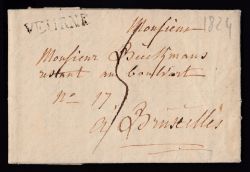 VEURNE
1824
Monsieur
Monsieur Beeckmans
restant au boulvert
No 17
5
a Bruxelles